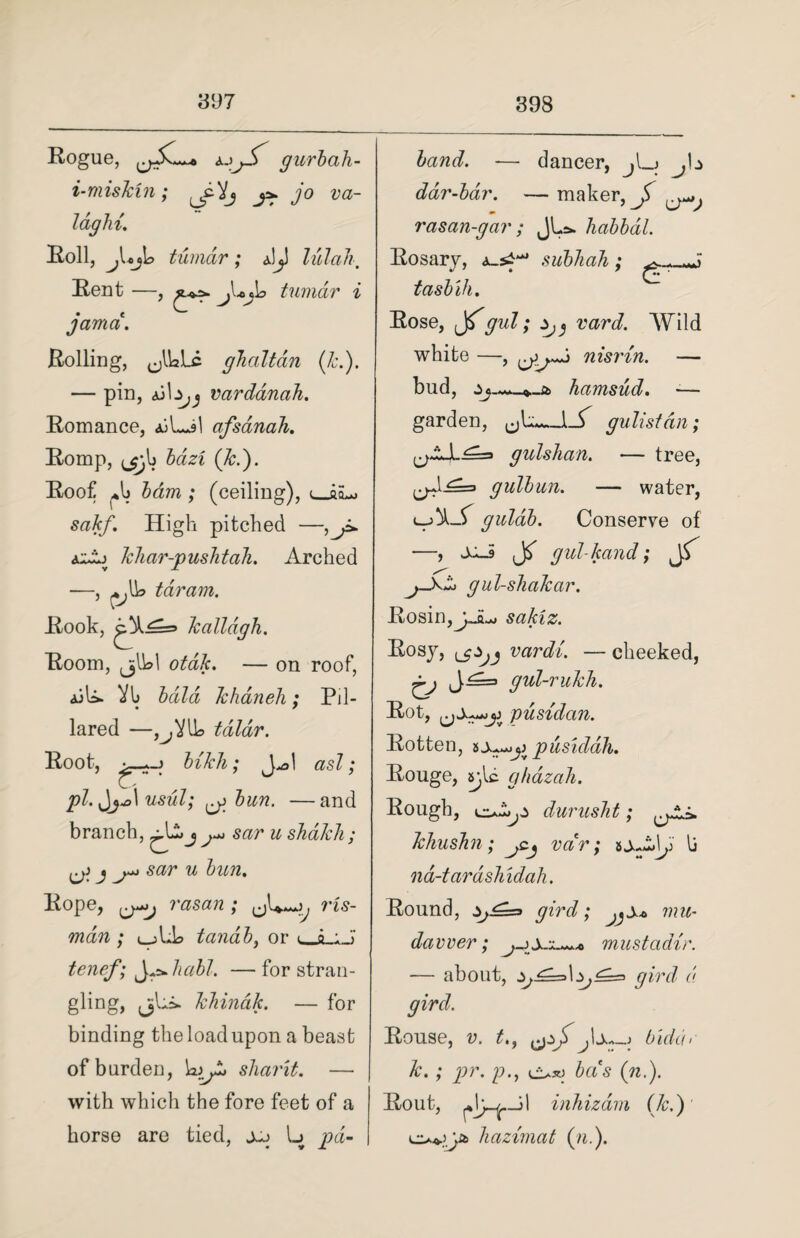 397
Rogue, گربه مسکین gurbah-
i-miskín; جو ولاغی jo va-
lághí.
Roll, طومار túmár; لوله lúlah.
Rent —, طومار جمع tumár i
jamaʿ.
Rolling, غلطان ghaltán (k.).
— pin, وردانه vardánah.
Romance, افسانه afsánah.
Romp, بازی bází (k.).
Roof, بام bám; (ceiling), سقف
sakf. High pitched —, خر
پشته khar-pushtah. Arched
—, طارم táram.
Rook, کلاغ kallágh.
Room, اطاق oták. — on roof,
بالا خانه bálá kháneh; Pil-
lared —, طالار tálár.
Root, بیخ bíkh; اصل asl;
pl. اصول usúl; بن bun. — and
branch, سر و شاخ sar u shákh;
سر و بن sar u bun.
Rope, رسن rasan; ریسمان rís-
mán; طناب tanáb, or تنف
tenef; حبل habl. — for stran-
gling, خناق khinák. — for
binding the load upon a beast
of burden, شریط sharít. —
with which the fore feet of a
horse are tied, پا بند pá-
398
band. — dancer, دار باز
dár-bár. — maker, رسن گر
rasan-gar; حبال habbál.
Rosary, سبحه subhah; تسبیح
tasbíh.
Rose, گل gul; ورد vard. Wild
white —, نسرین nisrín. —
bud, همسود hamsúd. —
garden, گلستان gulistán;
گلشن gulshan. — tree,
گلبن gulbun. — water,
گلاب guláb. Conserve of
—, گل قند gul-kand; گل
شکر gul-shakar.
Rosin, سقز sakiz.
Rosy, وردی vardí. — cheeked,
گل رخ gul-rukh.
Rot, پوسیدن púsídan.
Rotten, پوسیده púsídáh.
Rouge, غازه gházah.
Rough, درشت durusht; خشن
khushn; وعر vaʿr; نا تراشیده
ná-tardshídah.
Round, گرد gird; مدور mu-
davver; مستدیر mustadír.
— about, گرداگرد gird á
gird.
Rouse, v. t., بیدار کردن bídár
k.; pr. p., بعث baʿs (n.).
Rout, انهزام inhizám (k.)
هزیمت hazímat (n.).